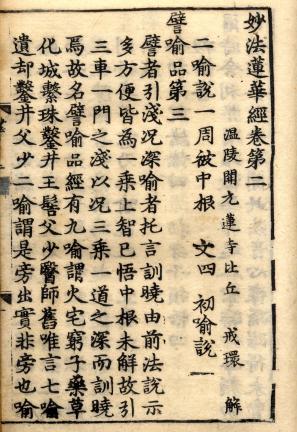 妙法蓮華經卷第二
溫陵開九蓮寺比丘 戒環 解
二喻說一周被中根 文四 初喻說一
譬喻品第三
譬者引淺况深喻者托言訓曉由前法說示
多方便皆為一乘上智已悟中根未解故引
三車一門之淺以况三乘一道之深而訓曉
焉故名譬喻品經有九喻謂火宅窮子藥草
化城繫珠鑿井王髻父少醫師舊唯言七喻
遺却鑿井父少二喻謂是旁出實非旁也喻